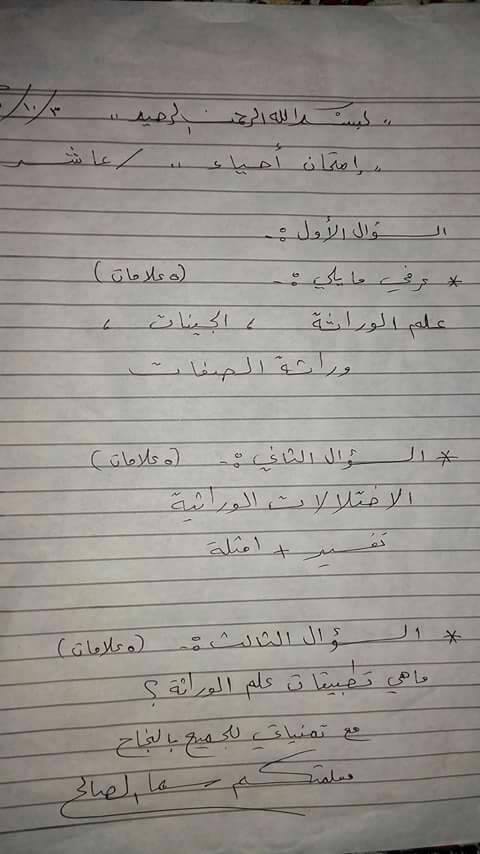 ١٠/٣/
,, بسم الله الرحمن الرحيم ,,
,, إمتحان أحياء ,, / عاشر
السؤال الأول :-
* عرفي ما يلي :- (٥ علامات)
علم الوراثة ، الجينات ،
وراثة الصفات
* السؤال الثاني :- (٥ علامات)
الاختلالات الوراثية
تفسير + امثلة
* السؤال الثالث :- (٥ علامات)
ماهي تطبيقات علم الوراثة ؟
مع تمنياتي للجميع بالنجاح
معلمتكم سهام الصالح